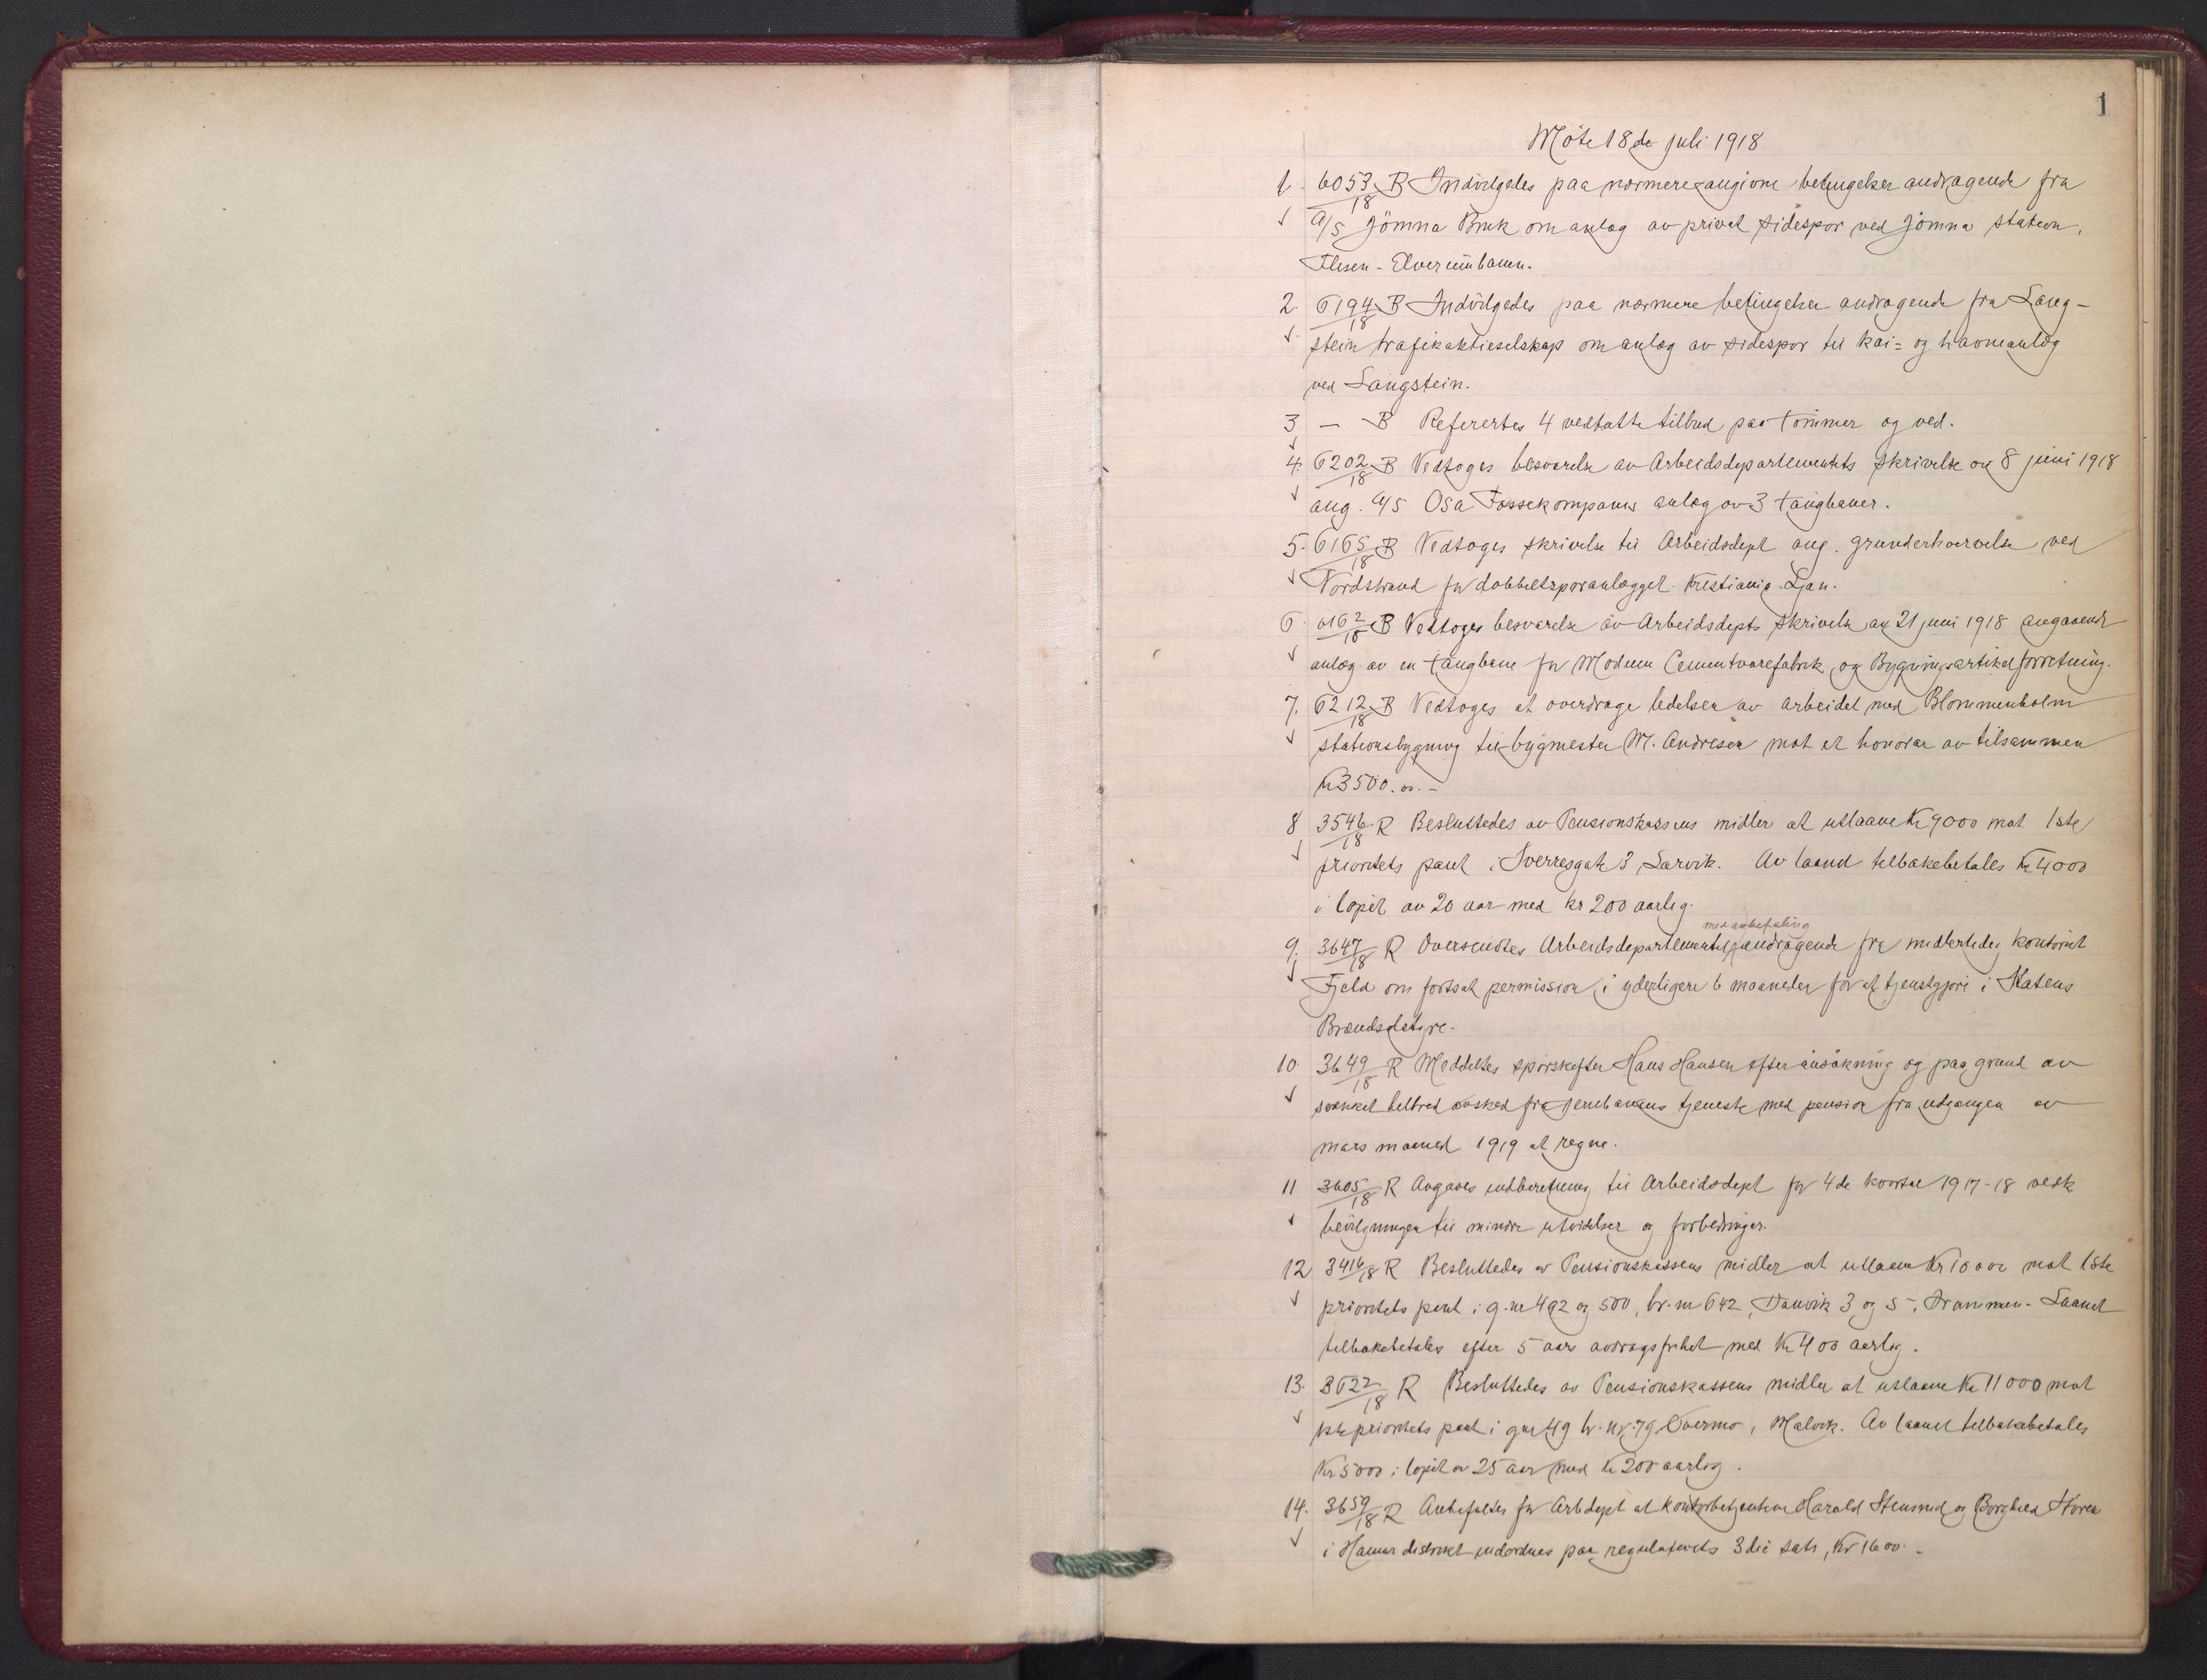 1
Møte 18de juli 1918
1. 6053/18 B Indvilgedes paa nærmere angivne betingelser andragende fra
A/S Jömna Bruk om anlæg av privat sidespor ved Jömna station,
Flisen - Elverumbanen.
2. 6194/18 B Indvilgedes paa nærmere betingelser andragende fra Lang-
stein trafikaktieselskap om anlæg av sidespor til kai= og havneanlæg
ved Langstein.
3 — B Referertes 4 vedtatte tilbud paa tömmer og ved.
4. 6202/18 B Vedtoges besvarelse av Arbeidsdepartementets skrivelse av 8 juni 1918
ang. A/S Osa Fossekompanis anlæg av 3 taugbaner.
5. 6165/18 B Vedtoges skrivelse til Arbeidsdept ang. grunderhvervelse ved
Nordstrand for dobbeltsporanlægget Kristiania - Ljan.
6. 6162/18 B Vedtoges besvarelse av Arbeidsdepts skrivelse av 21 juni 1918 angaaende
anlæg av en taugbane for Modum Cementvarefabrik og Bygningsartikelforretning.
7. 6212/18 B Vedtoges at overdrage ledelsen av arbeidet med Blommenholm
stationsbygning til bygmester M. Andresen mot et honorar av tilsammen
kr 3500.00.-
8 3546/18 R Besluttedes av Pensionskassens midler at utlaane Kr 9000 mot 1ste
prioritets pant i Sverresgate 3, Larvik. Av laanet tilbakebetales Kr 4000
i löpet av 20 aar med kr 200 aarlig.
med anbefaling
9. 3647/18 R Oversendtes Arbeidsdepartementet andragende fra midlertidig kontorist
Fjeld om fortsat permission i yderligere 6 maaneder for at tjenstgjöre i Statens
Brændselstyre.
10. 3649/18 R Meddeltes sporskifter Hans Hansen efter ansökning og paa grund av
svækket helbred avsked fra jernbanens tjeneste med pension fra utgangen av
mars maaned 1919 at regne.
11 3605/18 R Avgaves indberetning til Arbeidsdept for 4de kvartal 1917-18 vedk
bevilgninger til mindre utvidelser og forbedringer.
12 3416/18 R Besluttedes av Pensionskassens midler at utlaane Kr 10000 mot 1ste
prioritets pant i g.nr 492 og 500, br.nr 642, Danvik 3 og 5, Drammen. Laanet
tilbakebetales efter 5 aars avdragsfrihet med Kr 400 aarlig.
13. 3622/18 R Besluttedes av Pensionskassens midler at utlaane Kr 11000 mot
1ste prioritets pant i gnr 49 br.nr. 79 Overmo, Malvik. Av laanet tilbakebetales
Kr 5000 i löpet av 25 aar med Kr 200 aarlig.
14. 3659/18 R Anbefaltes for Arbdept at kontorbetjentene Harald Stensrud og Borghild Storen
i Hamar distrikt indordnes paa regulativets 3die sats, Kr 1600.-